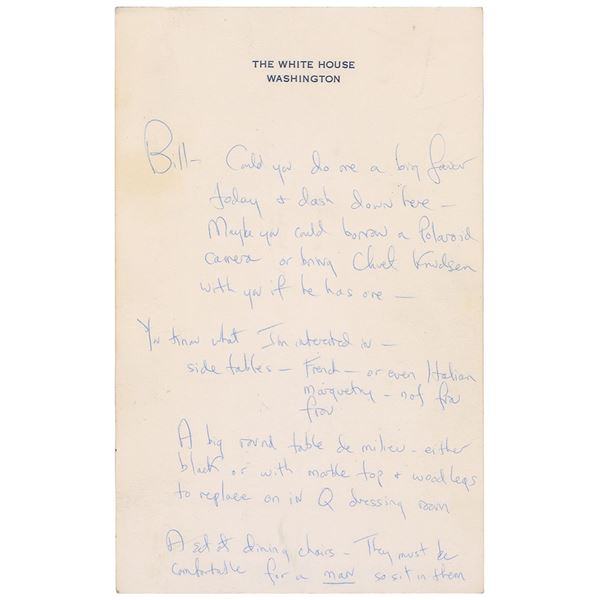 THE WHITE HOUSE
WASHINGTON
Bill - Could you do me a big favor
today & dash down here -
Maybe you could borrow a Polaroid
camera or bring Chet Knudsen
with you if he has one -
You know what I'm interested in -
side tables - French - or even Italian
marquetry - not frou
frou
A big round table de milieu - either
black or with marble top & wood legs
to replace on in Q dressing room
A set of dining chairs - They must be
comfortable for a man so sit in them